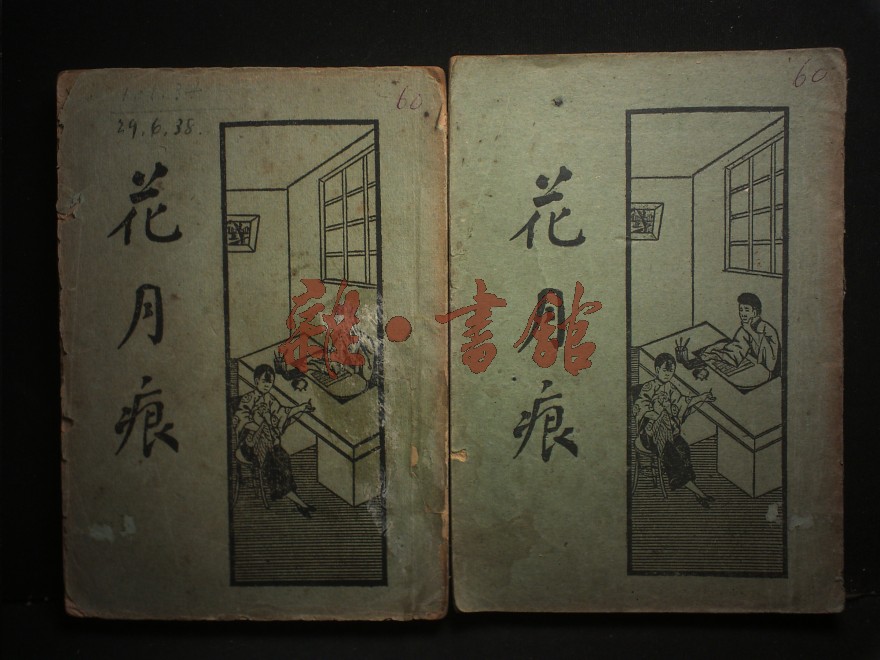 60
29.6.38.
花月痕
60
花月痕
雜·書館